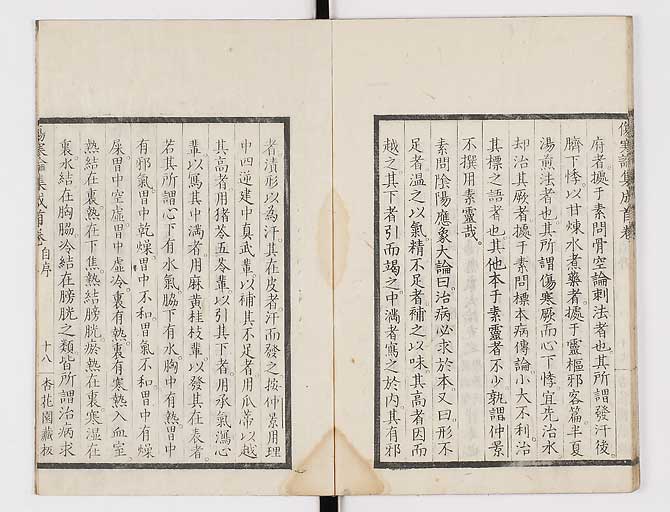 傷寒論集成首卷
府者。據于素問骨空論刺法者也其所謂發汗後。
臍下悸以甘煉水煮藥者。據于靈樞邪客篇半夏
湯煎法者也其所謂傷寒厥而心下悸宜先治水
却治其厥者據于素問標本病傳論小大不利治
其標之語者也其他本于素靈者不少孰謂仲景
不撰用素靈哉。
素問陰陽應象大論曰。治病必求於本又曰形不
足者溫之以氣精不足者補之以味其高者因而
越之其下者引而竭之中滿者瀉之於內其有邪
者漬形以為汗其在皮者汗而發之。按仲景用理
中四逆建中真武輩。以補其不足者用瓜蒂以越
其高者用猪苓五苓輩以引其下者。用承氣瀉心
輩以瀉其中滿者用麻黃桂枝輩。以發其在表者。
若其所謂心下有水氣脇下有水胸中有熱胃中
有邪氣胃中乾燥。胃中不和。胃氣不和。胃中有燥
屎胃中空虛。胃中虛冷。裏有熱。裏有寒熱入血室
熱結在裏。熱在下焦。熱結膀胱。瘀熱在裏。寒濕在
裏。水結在胸脇冷結在膀胱之類皆所謂治病求
傷寒論集成首卷 自序 十八 杏花園藏板